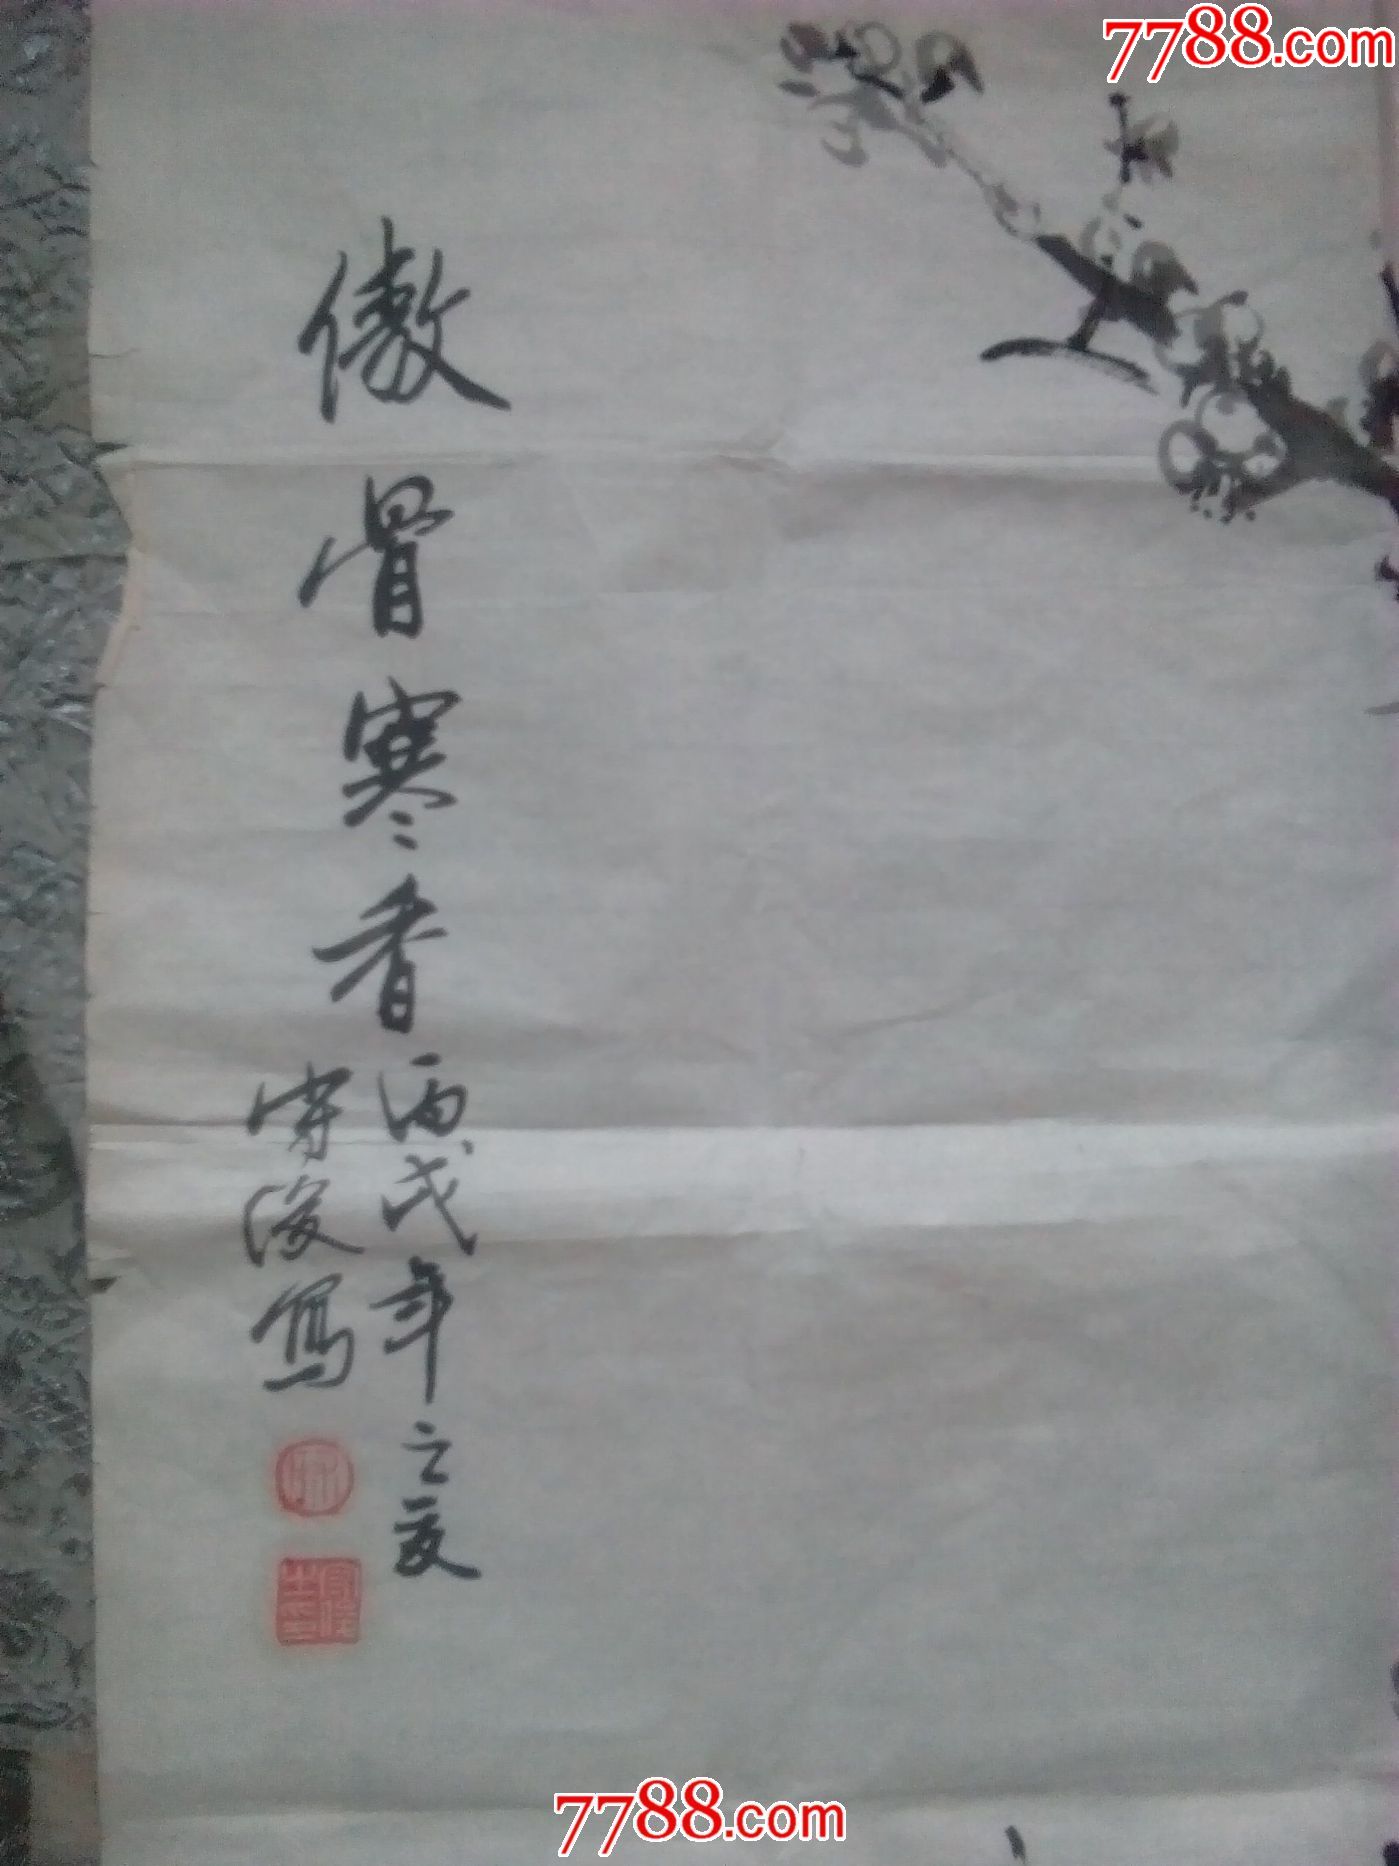 7788.com
傲骨寒香
丙戌年之夏
俊写
7788.com